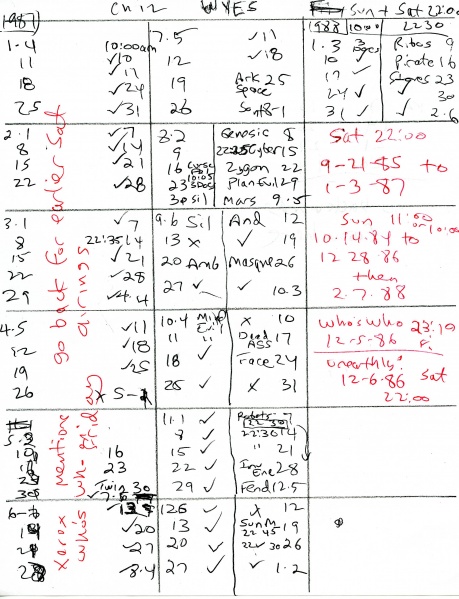 1987 Ch 12 WYES Sun + Sat 22:00
1988 10:00 22 30
1-4 10:00am 7.5 ✓11 1.3 3 Docs Ribos 9
11 ✓10 12 ✓18 10 ✓ Pirate 16
18 ✓24 19 Ark 25 17 ✓ Stones 23
Space 24 ✓ ✓ 30
25 ✓31 26 Son 8-1 31 ✓ ✓ 2.6
2.1 ✓7 8.2 Genosic 8 Sat 22:00
8 ✓14 9 22:35 Cyber 15 9-21-85 to
15 ✓21 16 Zygon 22 1-3-87
22 ✓28 23 Plan Evil 29
30 Sil Mars 9.5
3.1 ✓7 9.6 Sil And 12 Sun 11:00
8 22:35 14 13 x ✓ 19 10.14.84 to
15 ✓21 20 Amb Masque 26 12 28 86
22 ✓28 27 ✓ ✓ 10.3 then
29 ✓4.4 2.7.88
4.5 ✓11 10.4 x 10 Who's Who 23:10
12 ✓18 11 " Dead ASS 17 12-5-86
19 ✓25 18 ✓ Face 24 unearthly:
26 x 25 ✓ x 31 12-6.86 Sat
22:00
11.1 ✓ Robots 7
22 30
8 ✓ 22:30 14
16 15 ✓ " 21
23 22 ✓ Inv Ene 28
Twin 30 29 ✓ Fend 12.5
126 ✓ x 12
✓20 13 ✓ Sun M 19
22 45
✓27 20 ✓ 22 30 26
8.4 27 ✓ ✓ 1.2
go back for earlier Sat
airings
xerox mentions
who's who Friday